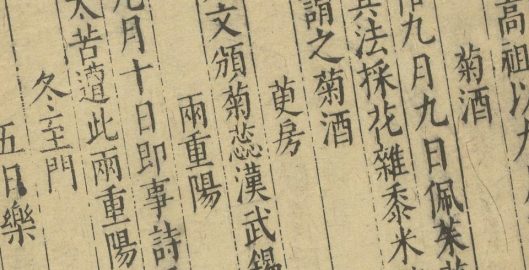 高祖以
菊酒
九月九日佩茱
法採花雜黍米
謂之菊酒
萸房
文頒菊蕊漢武錫
兩重陽
九月十日即事詩
太苦遭此兩重陽
冬至門
五日樂